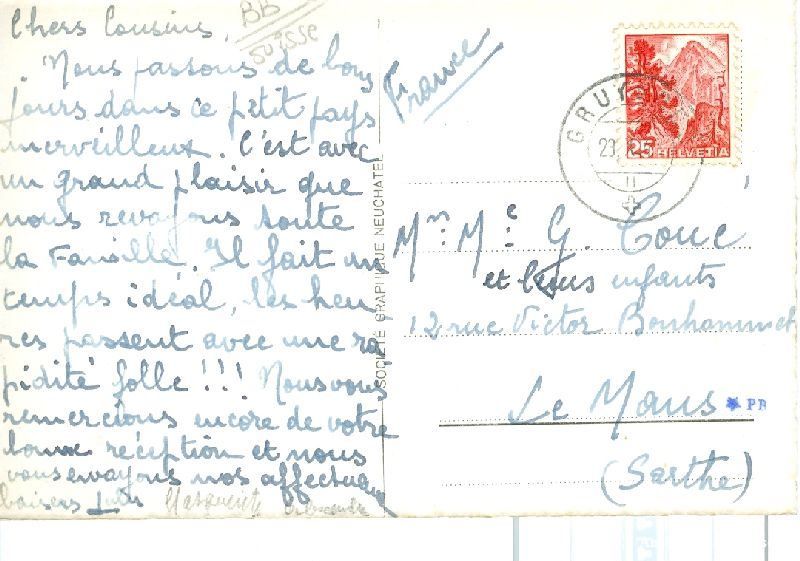 BB
suisse
Chers Cousins,
Nous passons de bons
jours dans ce petit pays
merveilleux. C'est avec
un grand plaisir que
nous revoyons toute
la Famille. Il fait un
temps idéal, les heu
res passent avec une ra
pidité folle !!! Nous vous
remercions encore de votre
bonne réception et nous
vous envoyons nos affectueux
baisers
Marguerite
SOCIÉTÉ GRAPHIQUE NEUCHATEL
France
GRUY
25 HELVETIA
Mr. Me G. Couc
et leurs enfants
12 rue Victor Bonhommet
Le Mans
PB
(Sarthe)